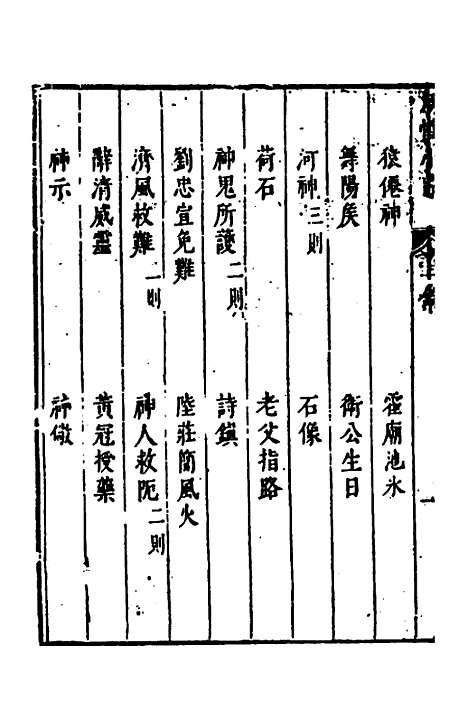 猿僊神　霍廟池氷
舞陽矦　衛公生日
河神三則　石像
荷石　老父指路
神鬼所護二則　詩鎮
劉忠宣免難　陸莊簡風火
濟風救難二則　神人救阨二則
辭濟威靈　黄冠授藥
神示　神儆